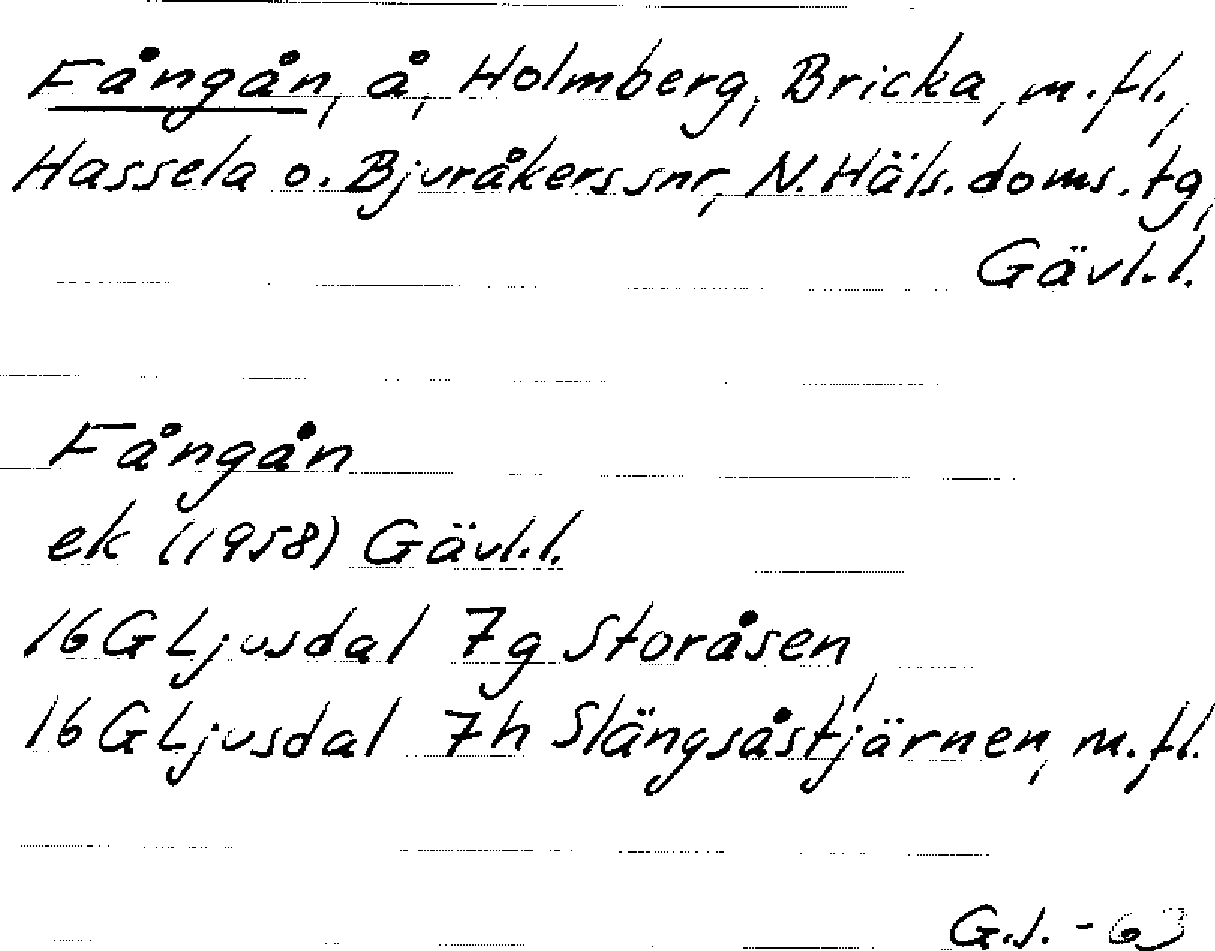 Fångån, å, Holmberg, Bricka, m.fl.,
Hassela o. Bjuråkers snr, N. Häls. doms. tg,
Gävl.l.
Fångån
ek (1958) Gävl.l.
16G Ljusdal 7g Storåsen
16G Ljusdal 7h Slängsåstjärnen, m.fl.
G.S. - 63